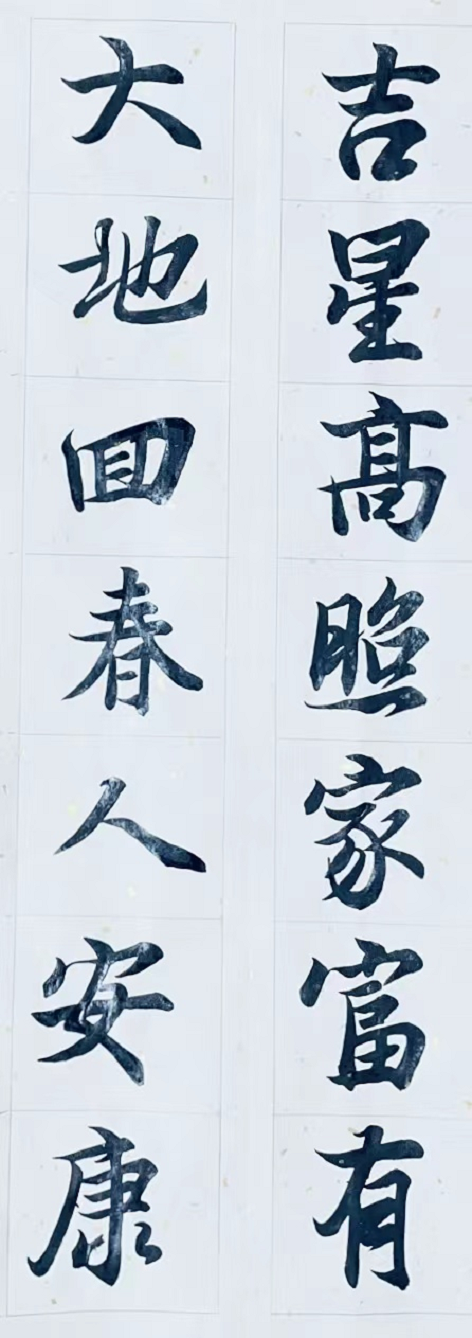 吉星髙照家富有
大地回春人安康